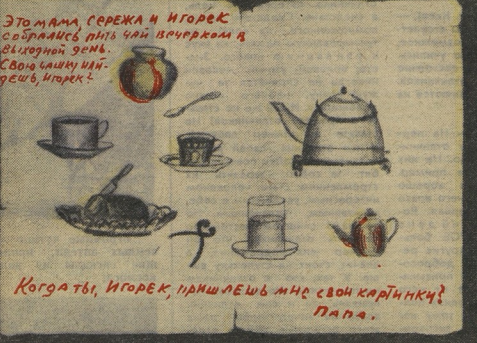 Это мама, Сережа и Игорек
собрались пить чай вечерком в
выходной день.
Свою чашку най-
дешь, Игорек?
Когда ты, Игорек, пришлешь мне свои картинки?
Папа.